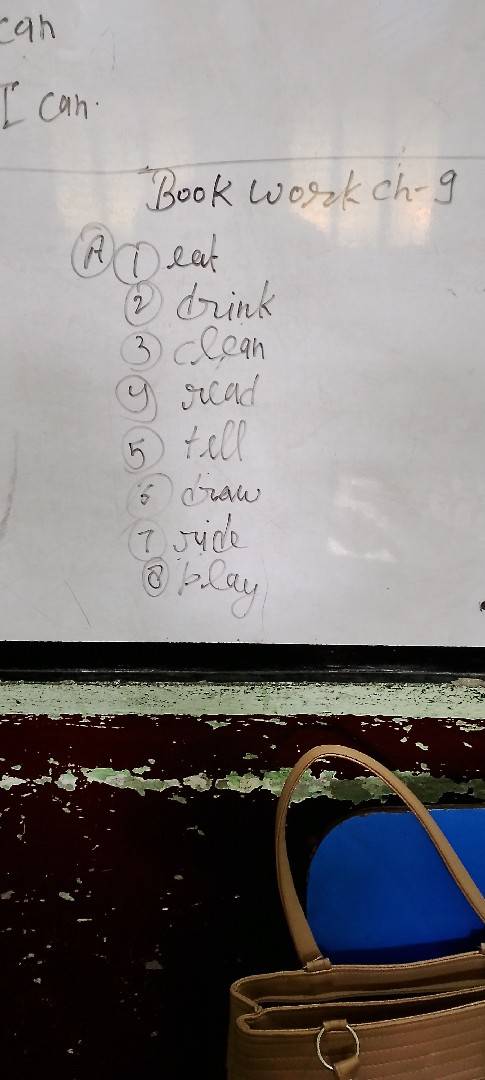 can
I can.
Book work ch-9
A 1 eat
2 drink
3 clean
4 read
5 tell
6 draw
7 ride
8 play